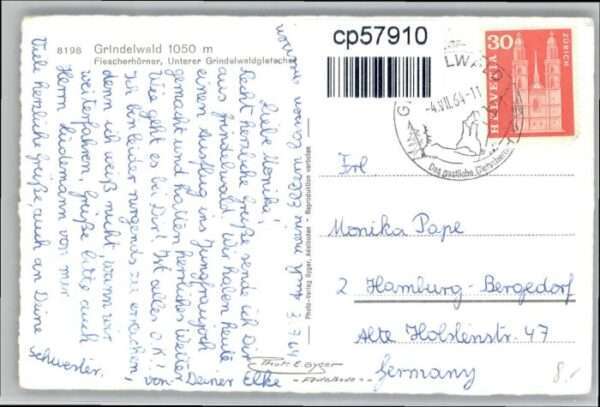 8198 Grindelwald 1050 m
Fiescherhörner, Unterer Grindelwaldgletscher
cp57910
30
HELVETIA
ZÜRICH
-4.VII.64-11
Liebe Monika!
Recht herzliche Grüße sende ich Dir
aus Grindelwald. Wir haben heute
einen Ausflug ins Jungfraujoch
gemacht und hatten herrliches Wetter.
Wie geht es bei Dir? Ist alles O.K!
Ich bin leider nirgends zu erreichen,
denn ich weiß nicht, wann wir
weiterfahren. Grüße bitte auch
Herrn Lindemann von mir
Viele herzliche Grüße auch an Deine
Schwester.
von Deiner Elke
auch meine Eltern wissen
3.7.64
Photo-Verlag Gyger, Adelboden - Reproduktion verboten
Frl.
Monika Pape
2 Hamburg-Bergedorf
Alte Holstenstr. 47
Germany
Photo E Gyger
Adelboden
8.-